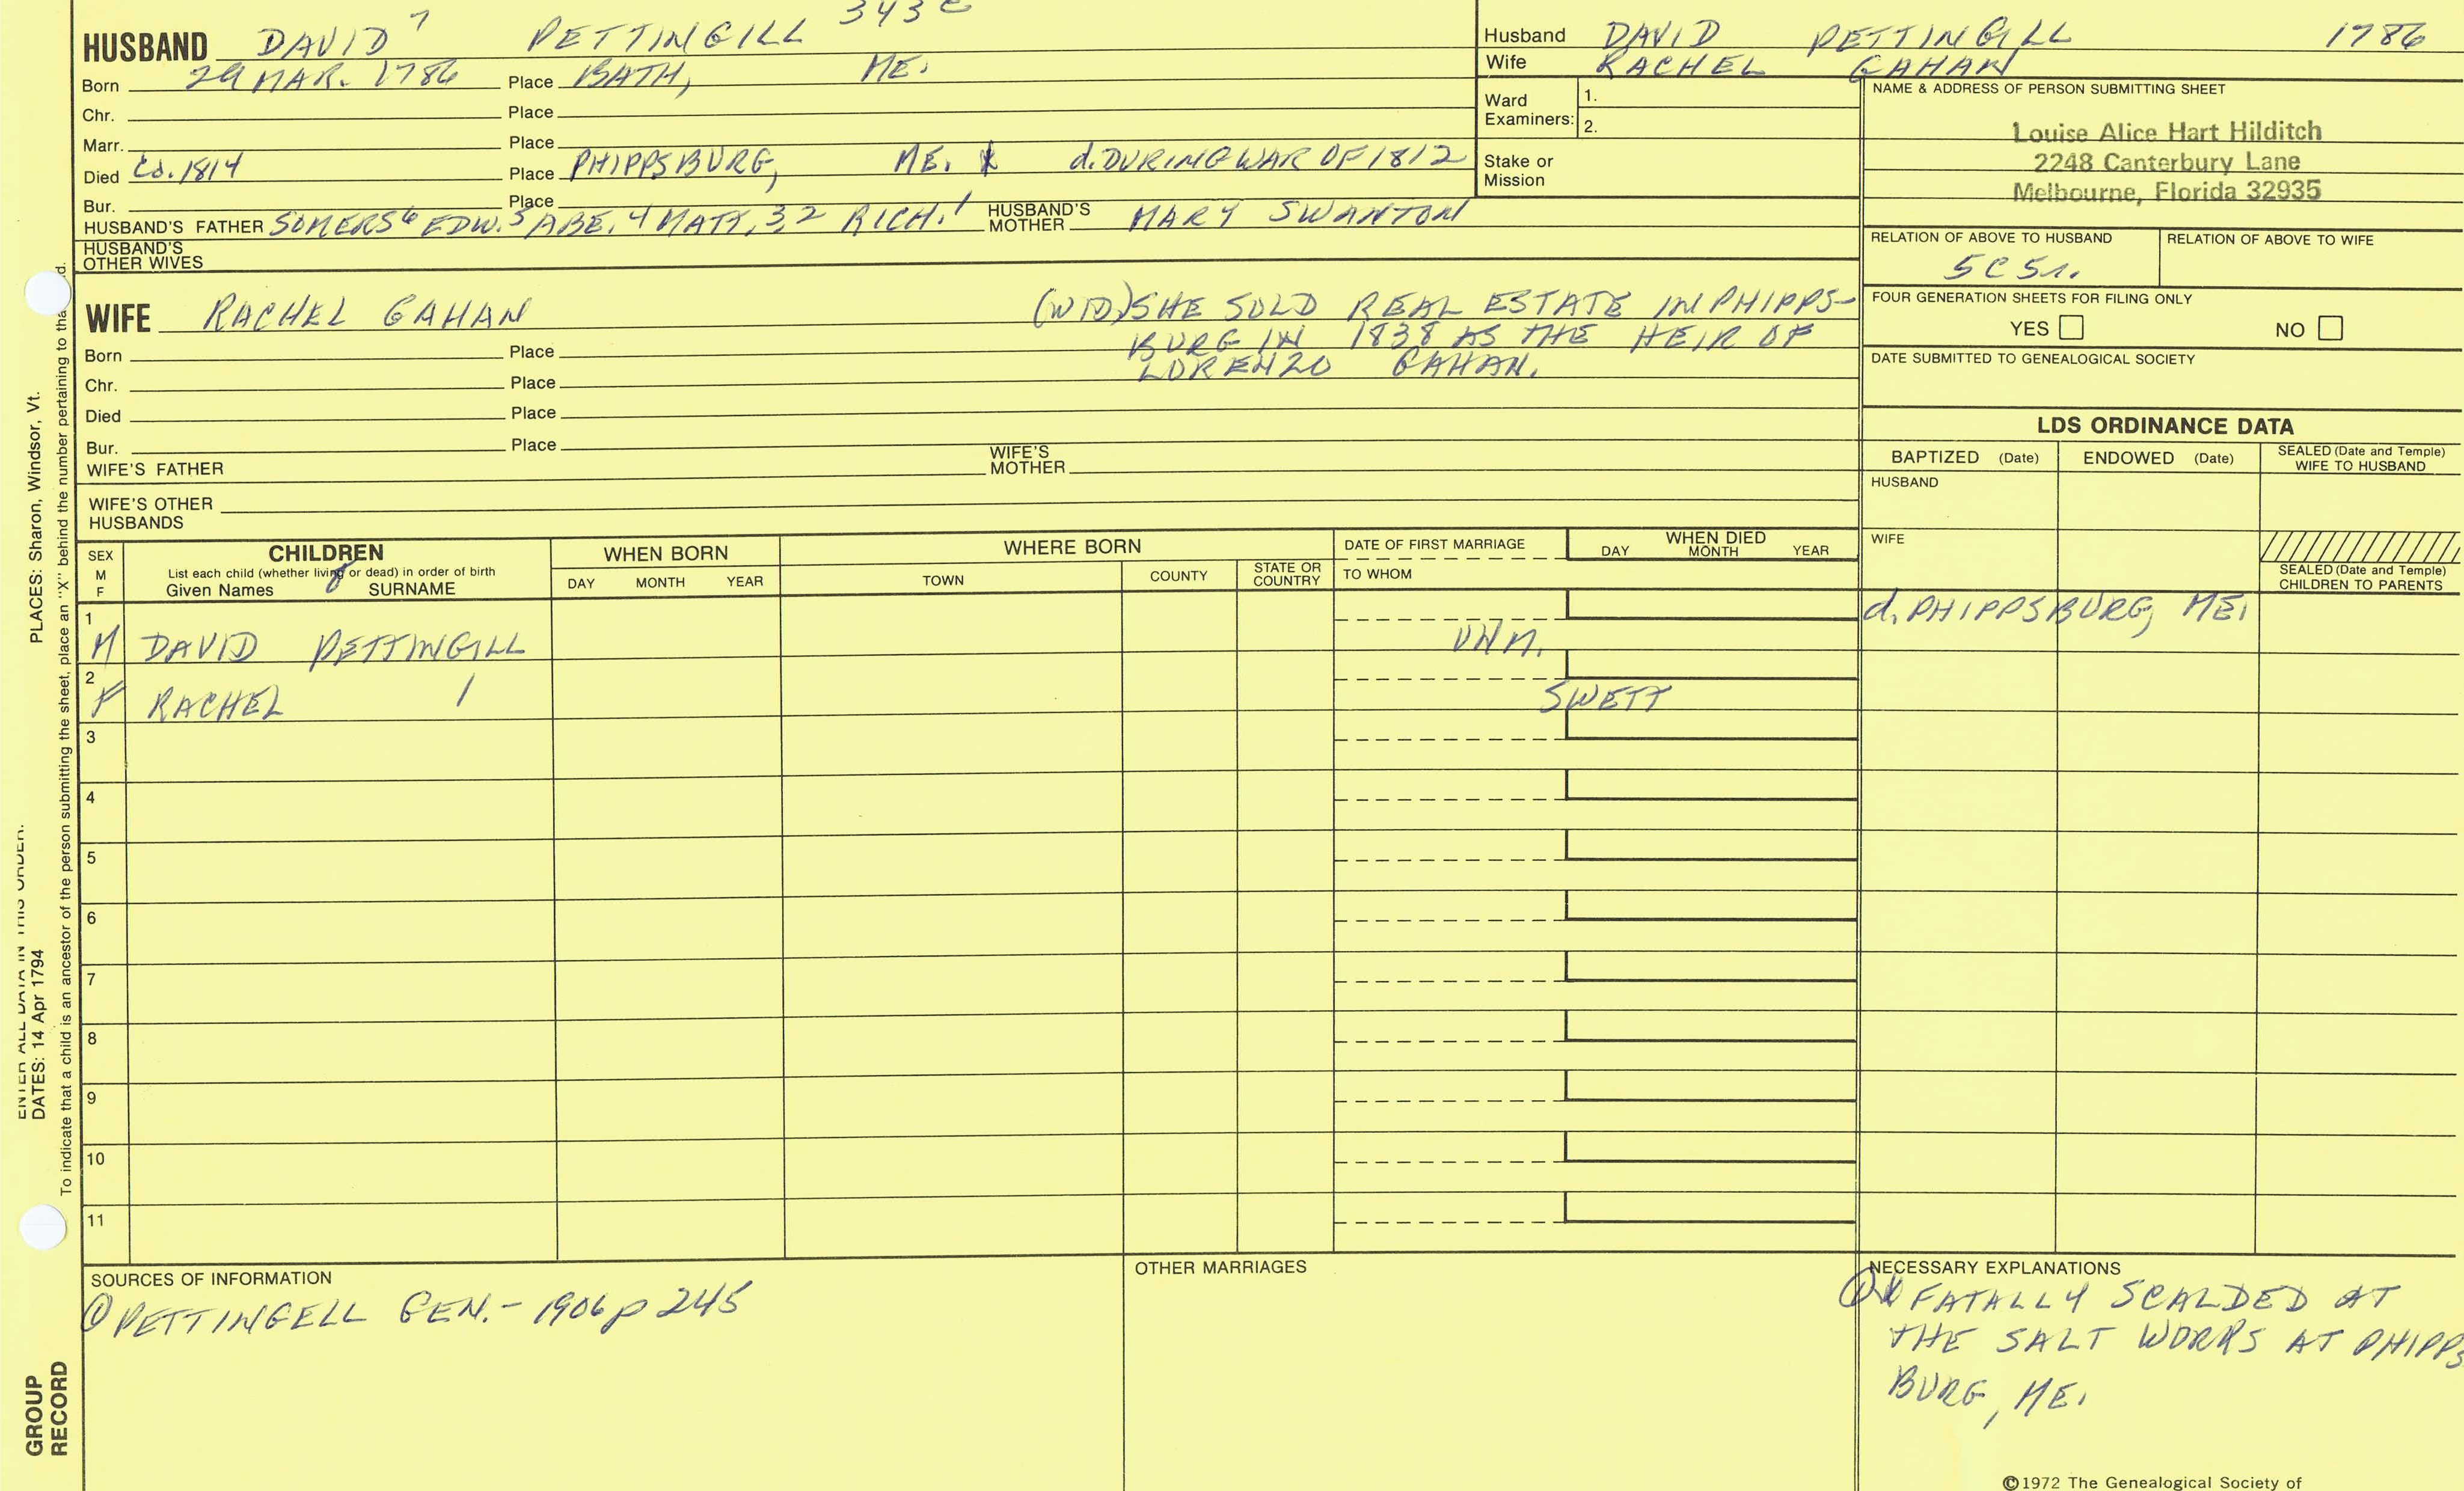 343 C
HUSBAND DAVID 7 PETTINGILL
Born 29 MAR. 1786 Place BATH, ME.
Chr. Place
Marr. Place
Died Ca. 1814 Place PHIPPSBURG, ME. X d. DURING WAR OF 1812
Bur. Place
HUSBAND'S FATHER SOMERS 6 EDW. 5 ABE. 4 MATT. 3, 2 RICH. 1 HUSBAND'S MOTHER MARY SWANTON
HUSBAND'S
OTHER WIVES
WIFE RACHEL GAHAN (WID) SHE SOLD REAL ESTATE IN PHIPPS-
BURG IN 1838 AS THE HEIR OF
LORENZO GAHAN.
Born Place
Chr. Place
Died Place
Bur. Place
WIFE'S FATHER WIFE'S MOTHER
WIFE'S OTHER
HUSBANDS
Husband DAVID PETTINGILL 1786
Wife RACHEL GAHAN
Ward
Examiners: 1.
2.
Stake or
Mission
NAME & ADDRESS OF PERSON SUBMITTING SHEET
Louise Alice Hart Hilditch
2248 Canterbury Lane
Melbourne, Florida 32935
RELATION OF ABOVE TO HUSBAND RELATION OF ABOVE TO WIFE
5C 5r.
FOUR GENERATION SHEETS FOR FILING ONLY
YES NO
DATE SUBMITTED TO GENEALOGICAL SOCIETY
LDS ORDINANCE DATA
BAPTIZED (Date) ENDOWED (Date) SEALED (Date and Temple)
WIFE TO HUSBAND
HUSBAND
WIFE
SEALED (Date and Temple)
CHILDREN TO PARENTS
SEX
M
F
CHILDREN
List each child (whether living or dead) in order of birth
Given Names SURNAME
WHEN BORN
DAY MONTH YEAR
WHERE BORN
TOWN COUNTY STATE OR COUNTRY
DATE OF FIRST MARRIAGE
TO WHOM
WHEN DIED
DAY MONTH YEAR
1
M DAVID PETTINGILL UNM. d. PHIPPSBURG, ME.
2
F RACHEL / SWETT
3
4
5
6
7
8
9
10
11
SOURCES OF INFORMATION
① PETTINGELL GEN. - 1906 p 245
OTHER MARRIAGES
NECESSARY EXPLANATIONS
① X FATALLY SCALDED AT
THE SALT WORKS AT PHIPPS
BURG, ME.
©1972 The Genealogical Society of
PLACES: Sharon, Windsor, Vt.
ENTER ALL DATA IN THIS ORDER:
DATES: 14 Apr 1794
To indicate that a child is an ancestor of the person submitting the sheet, place an "X" behind the number pertaining to tha d.
GROUP
RECORD